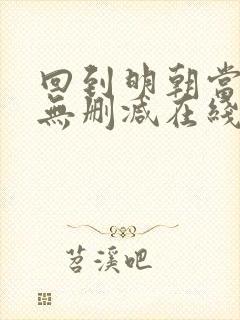 回到明朝當
無刪减在綫
苕溪吧